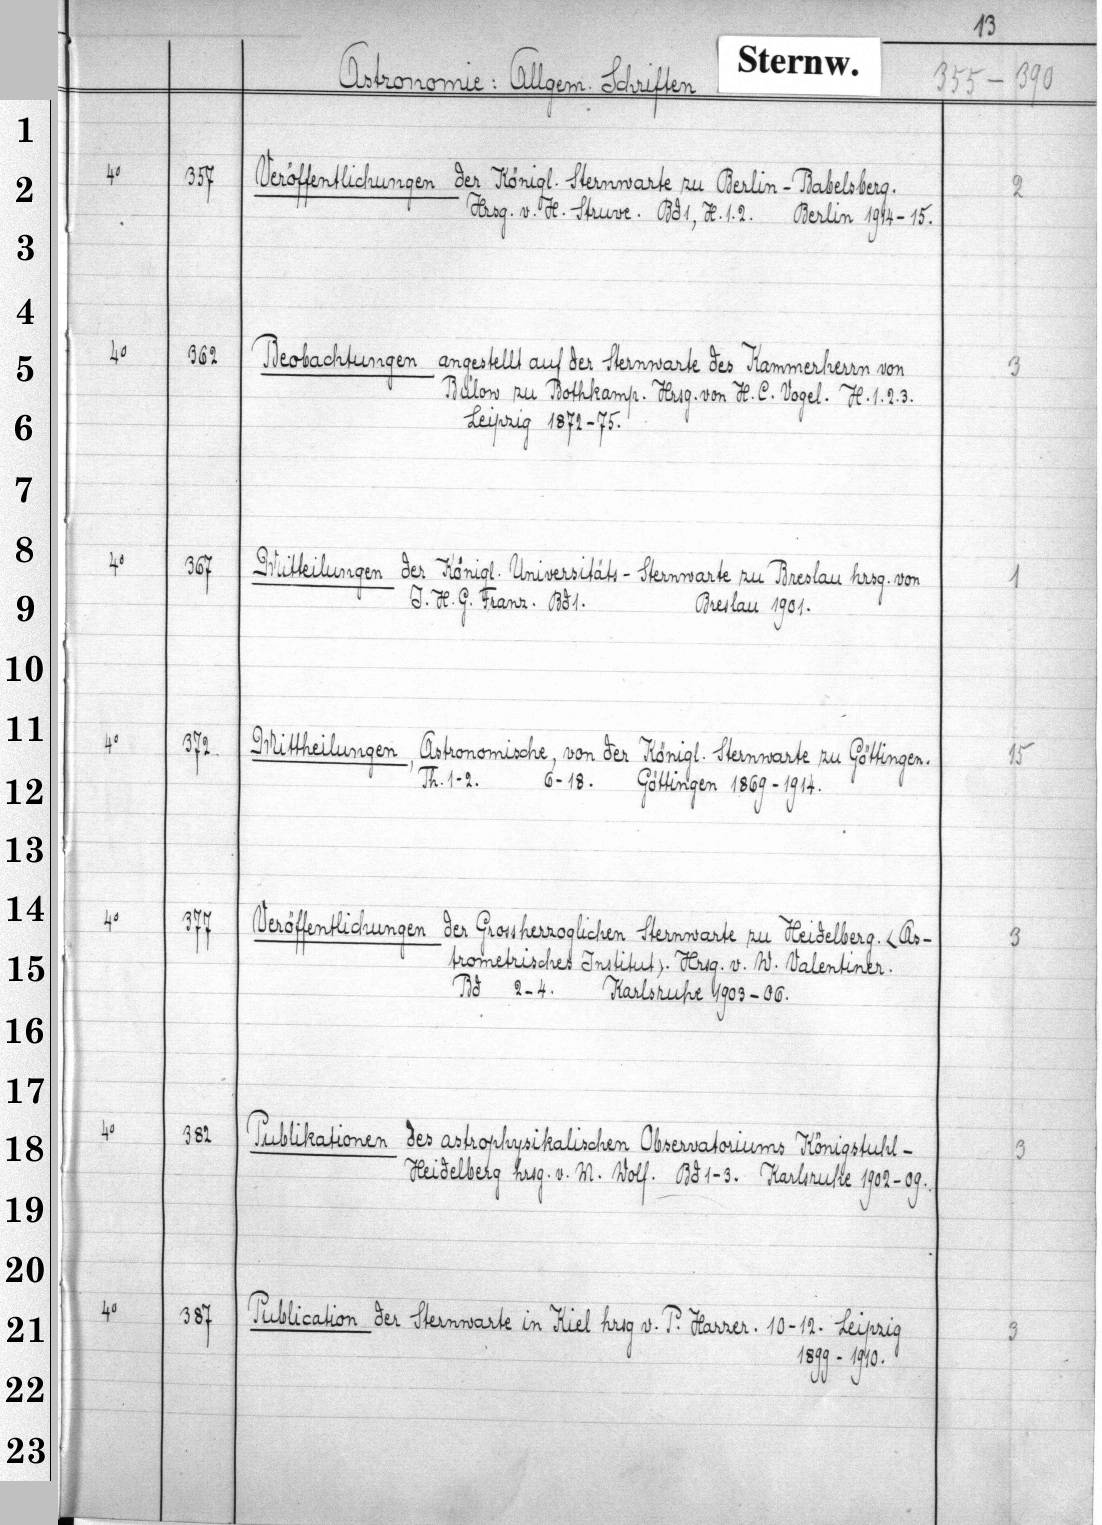 13
Astronomie: Allgem. Schriften Sternw. 355-390
1
4° 357 Veröffentlichungen der Königl. Sternwarte zu Berlin-Babelsberg. 2
2
Hrsg. v. H. Struve. Bd 1, H. 1. 2. Berlin 1914-15.
3
4
4° 362 Beobachtungen angestellt auf der Sternwarte des Kammerherrn von 3
5
Bülow zu Bothkamp. Hrsg. von H. C. Vogel. H. 1. 2. 3.
6
Leipzig 1872-75.
7
8
4° 367 Mitteilungen der Königl. Universitäts-Sternwarte zu Breslau hrsg. von 1
9
J. H. G. Franz. Bd 1. Breslau 1901.
10
11
4° 372 Mittheilungen, Astronomische, von der Königl. Sternwarte zu Göttingen. 15
12
Th. 1-2. 6-18. Göttingen 1869-1914.
13
14
4° 377 Veröffentlichungen der Grossherzoglichen Sternwarte zu Heidelberg. <As- 3
15
trometrisches Institut>. Hrsg. v. W. Valentiner.
Bd 2-4. Karlsruhe 1903-06.
16
17
4° 382 Publikationen des astrophysikalischen Observatoriums Königstuhl- 3
18
Heidelberg hrsg. v. M. Wolf. Bd 1-3. Karlsruhe 1902-09.
19
20
4° 387 Publication der Sternwarte in Kiel hrsg v. P. Harzer. 10-12. Leipzig 3
21
1899-1910.
22
23